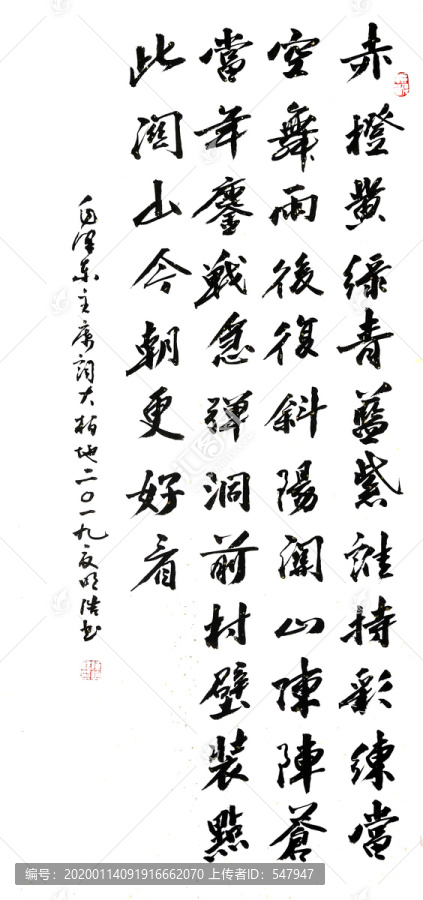 赤橙黄綠青藍紫誰持彩練當
空舞雨後復斜陽關山陣陣蒼
當年鏖戰急彈洞前村壁裝點
此關山今朝更好看
毛澤东主席詞大柏地二〇一九夏明浩书
编号：20200114091916662070 上传者ID：547947